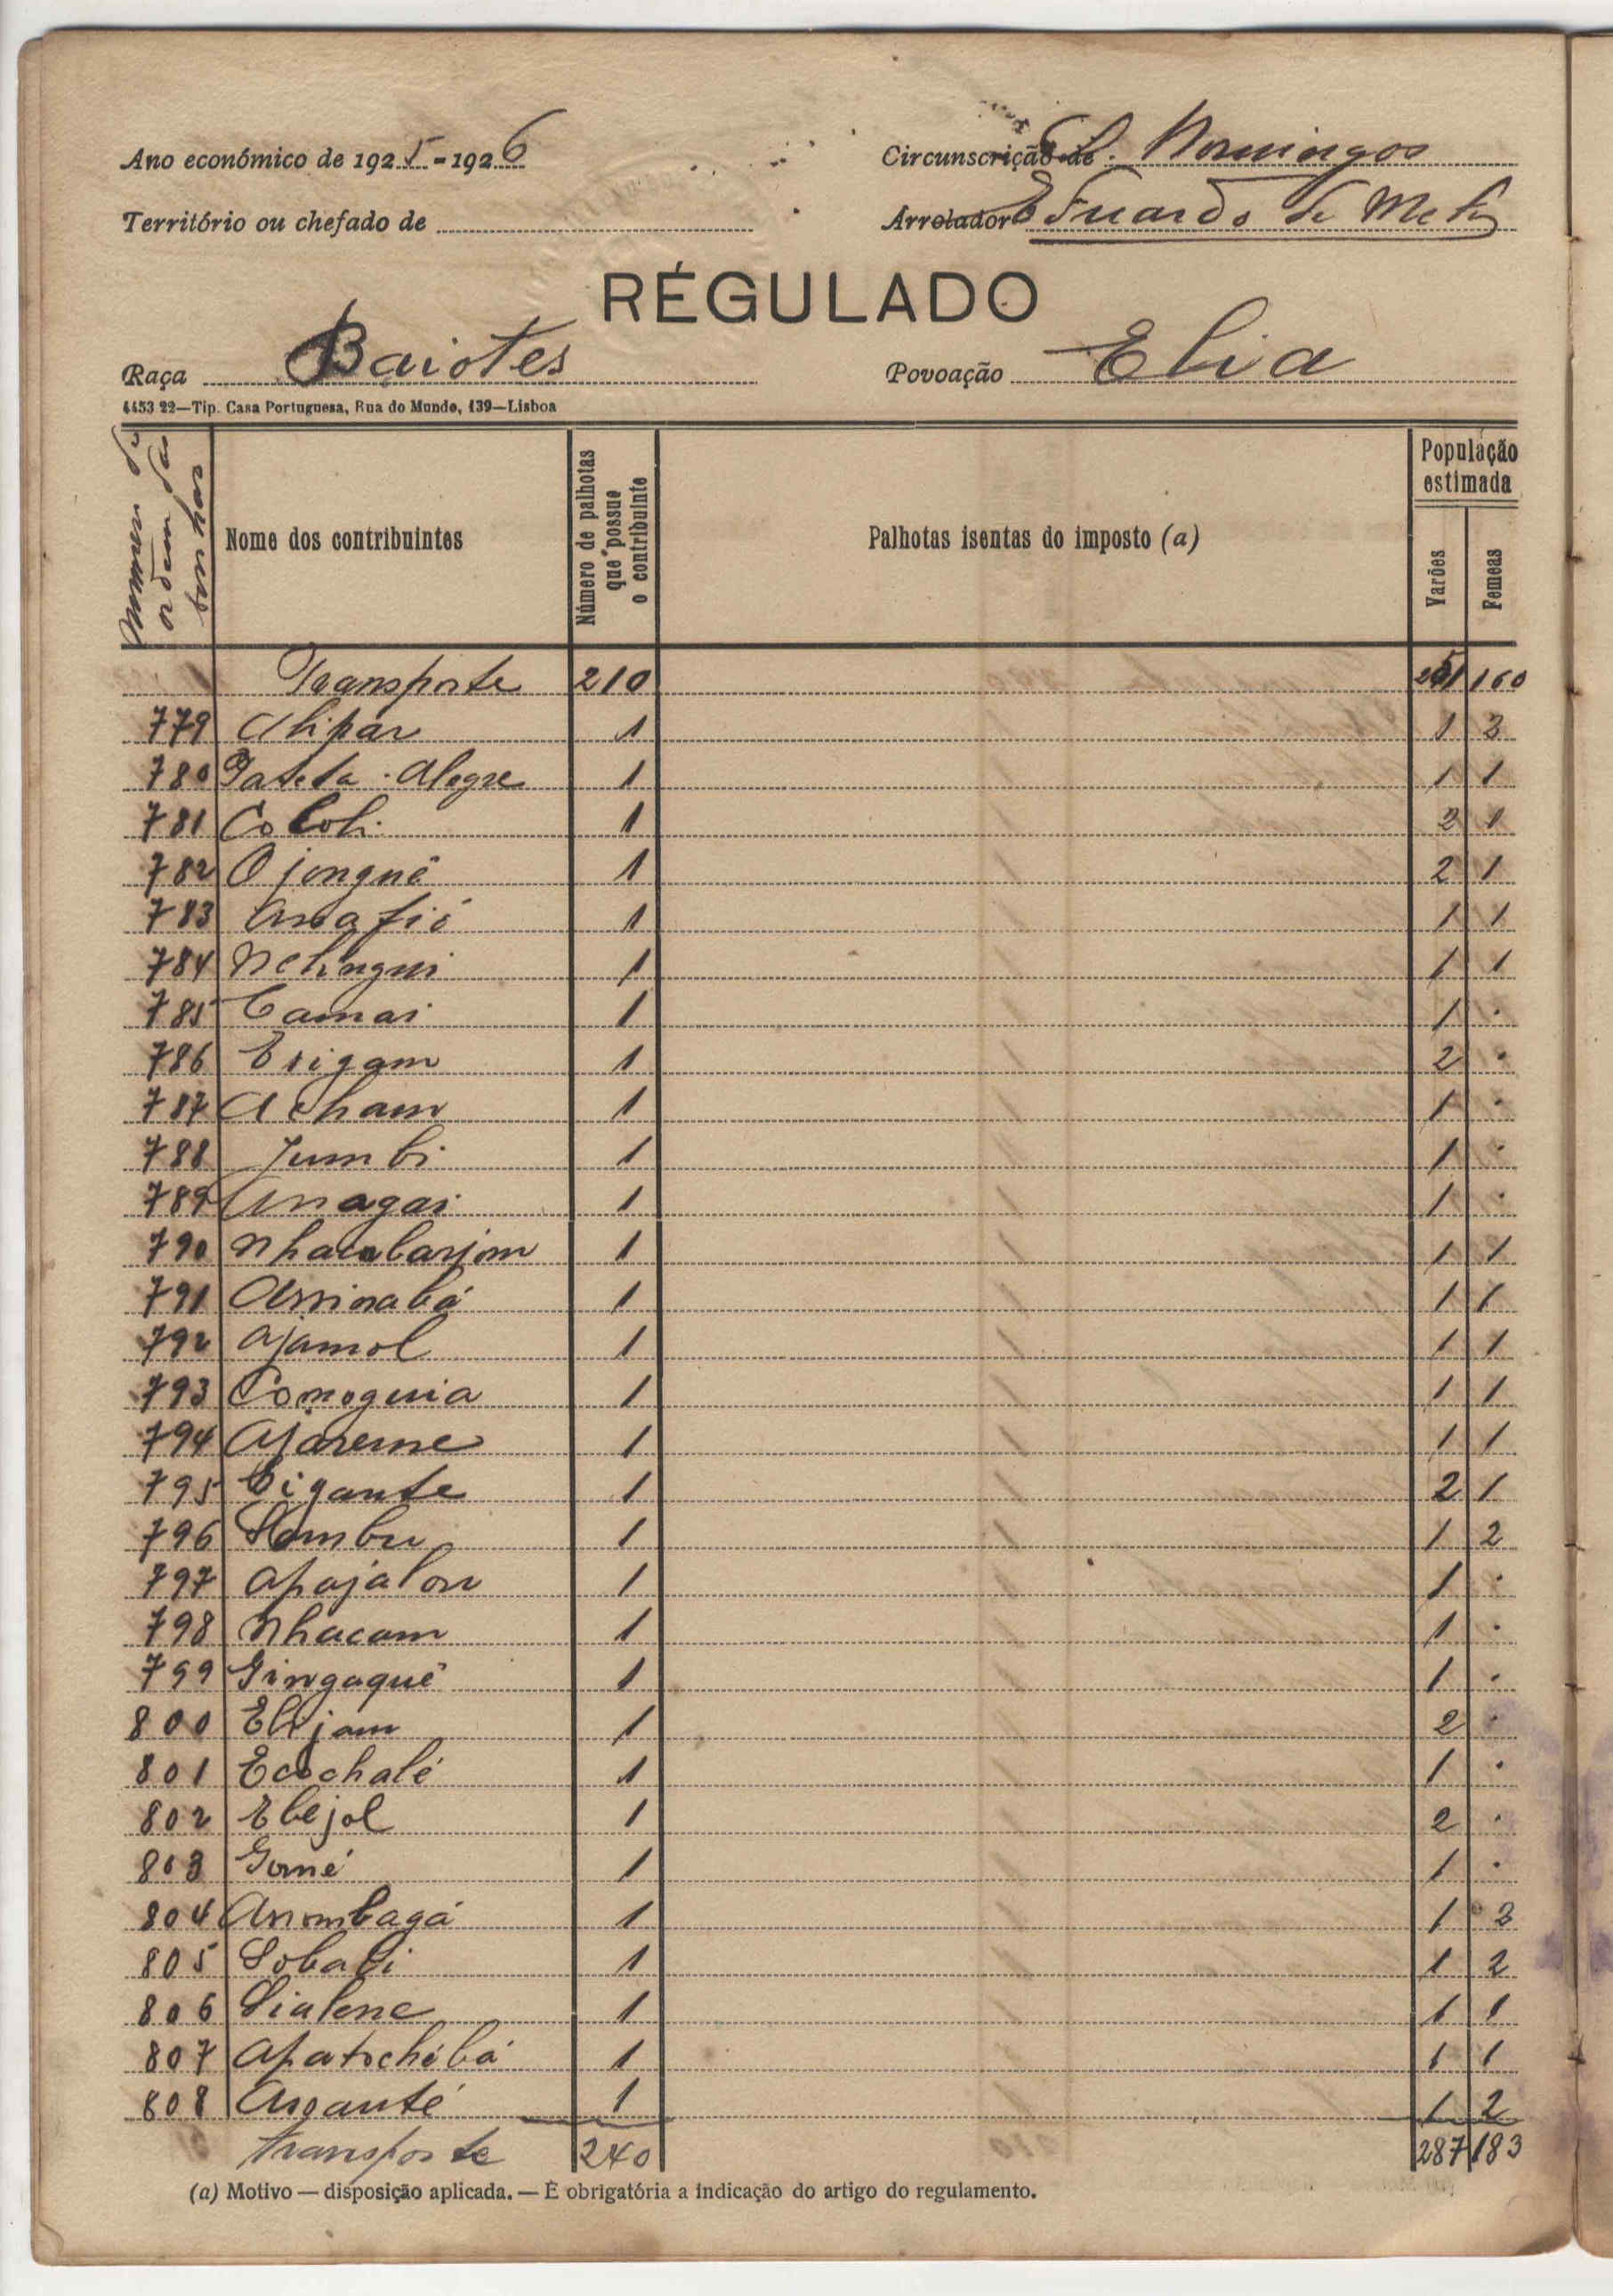 Ano económico de 1925-1926
Circunscrição de S. Domingos
Território ou chefado de
Arrolador Eduardo de
RÉGULADO
Raça Baiotes
Povoação Elia
4453 22—Tip. Casa Portuguesa, Rua do Mundo, 139—Lisboa
Numero de ordem das
Nome dos contribuintes
Número de palhotas que possue o contribuinte
Palhotas isentas do imposto (a)
População estimada
Varões
Femeas
Transporte 210 251 160
779 Alipar 1 1 3
780 Pateta Alegre 1 1 1
781 Cololi 1 2 1
782 Ojonguê 1 2 1
783 1 1 1
784 Nchingui 1 1 1
785 Camai 1 1 .
786 Erigam 1 2 .
787 Acham 1 1 .
788 Jumbi 1 1 .
789 Anagai 1 1 .
790 1 1 1
791 1 1 1
792 Ajamol 1 1 1
793 Comoguia 1 1 1
794 Ajareme 1 1 1
795 Gigante 1 2 1
796 1 1 2
797 Apajalon 1 1 .
798 Nhacam 1 1 .
799 Gingaquê 1 1 .
800 Elijam 1 2 .
801 Ecochalé 1 1 .
802 Ebejol 1 2 .
803 Gomé 1 1 .
804 Anombagá 1 1 3
805 Sobabi 1 1 2
806 Sialene 1 1 1
807 Apatochébá 1 1 1
808 1 1 2
Transporte 240 287 183
(a) Motivo — disposição aplicada. — É obrigatória a indicação do artigo do regulamento.